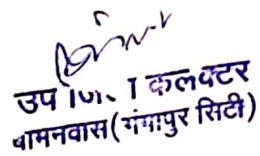 उप कलक्टर
बामनवास (गंगापुर सिटी)